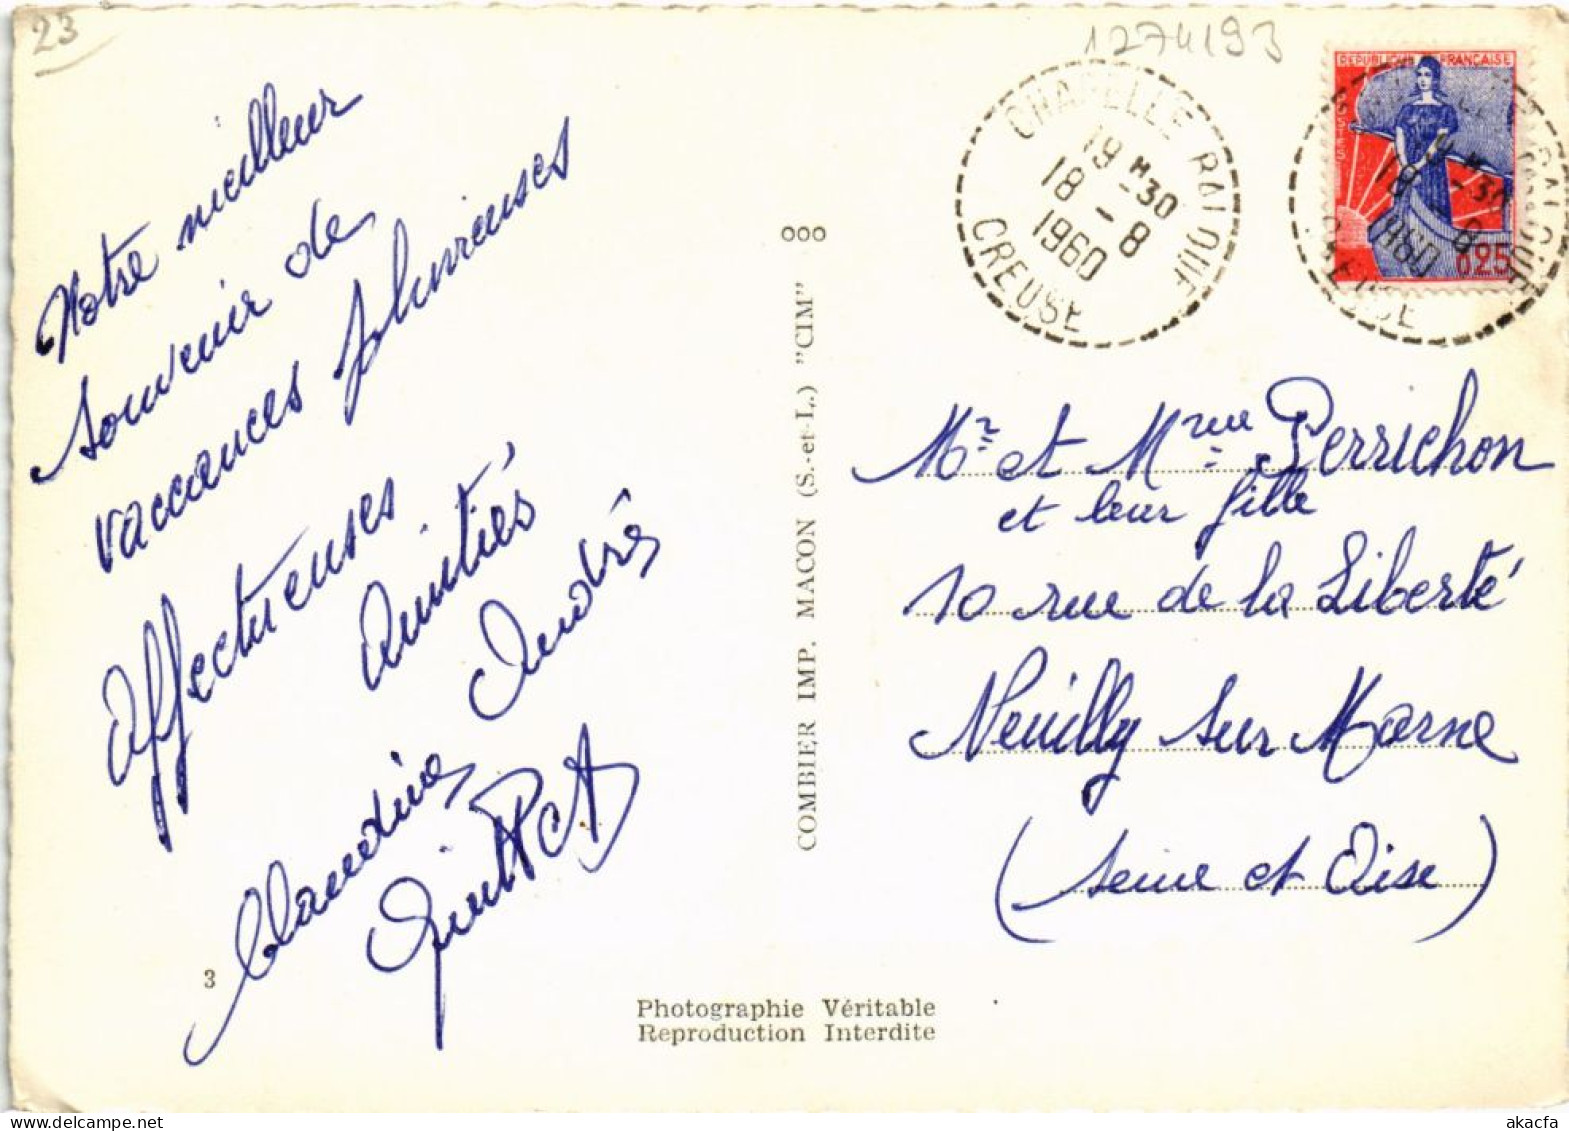 23
1274193
Notre meilleur
souvenir de
vaccances pluvieuses
Affectueuses
Amitiés
André
Claudine
3
CHAPELLE BALOUE
19 H 30
18 - 8
1960
CREUSE
REPUBLIQUE FRANÇAISE
0,25
COMBIER IMP. MACON (S.-et-L.) "CIM" ooo
Mr et Mme Perrichon
et leur fille
10 rue de la Liberté
Neuilly sur Marne
(Seine et Oise)
Photographie Véritable
Reproduction Interdite
www.delcampe.net
akacfa